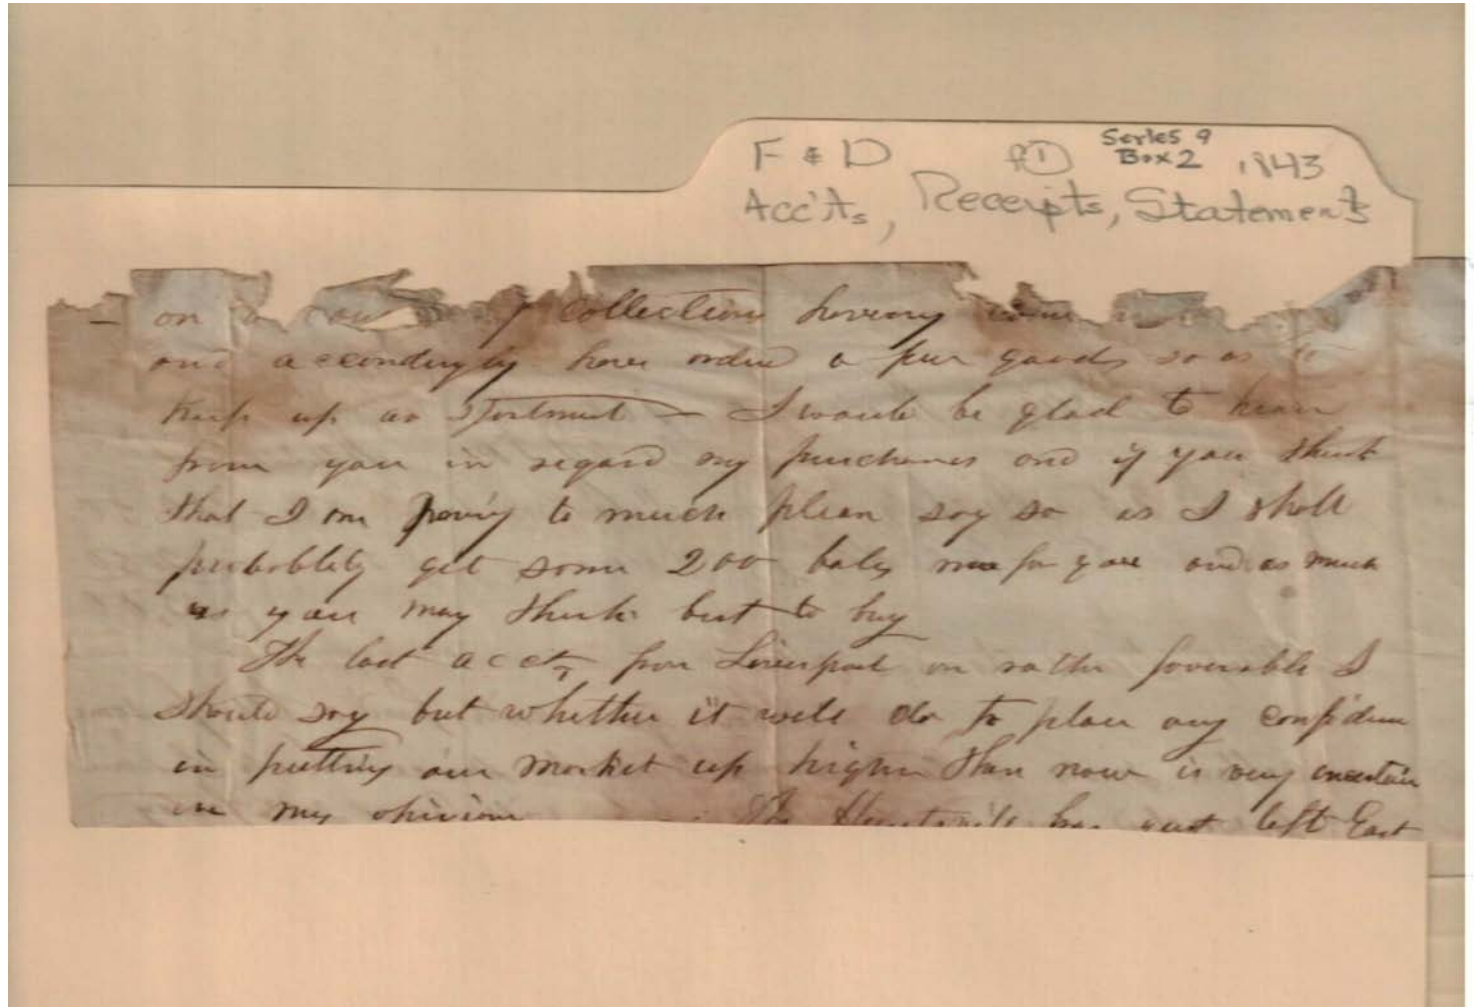 F & D f① Series 9
Box 2 1843
Acc'ts, Receipts, Statements
on collections having
and accordingly have order a few goods so as to
keep up as sortment — I would be glad to hear
from you in regard my purchases and if you think
that I am paying to much pleas say so as I shall
probablity get some 200 bales more for you and as much
as you may think best to buy
The last accts from Liverpool are rather favorable I
should say but whether it will do to place any confidence
in putting our market up higher than now is very uncertain
in my opinion The Huntsville has just left East